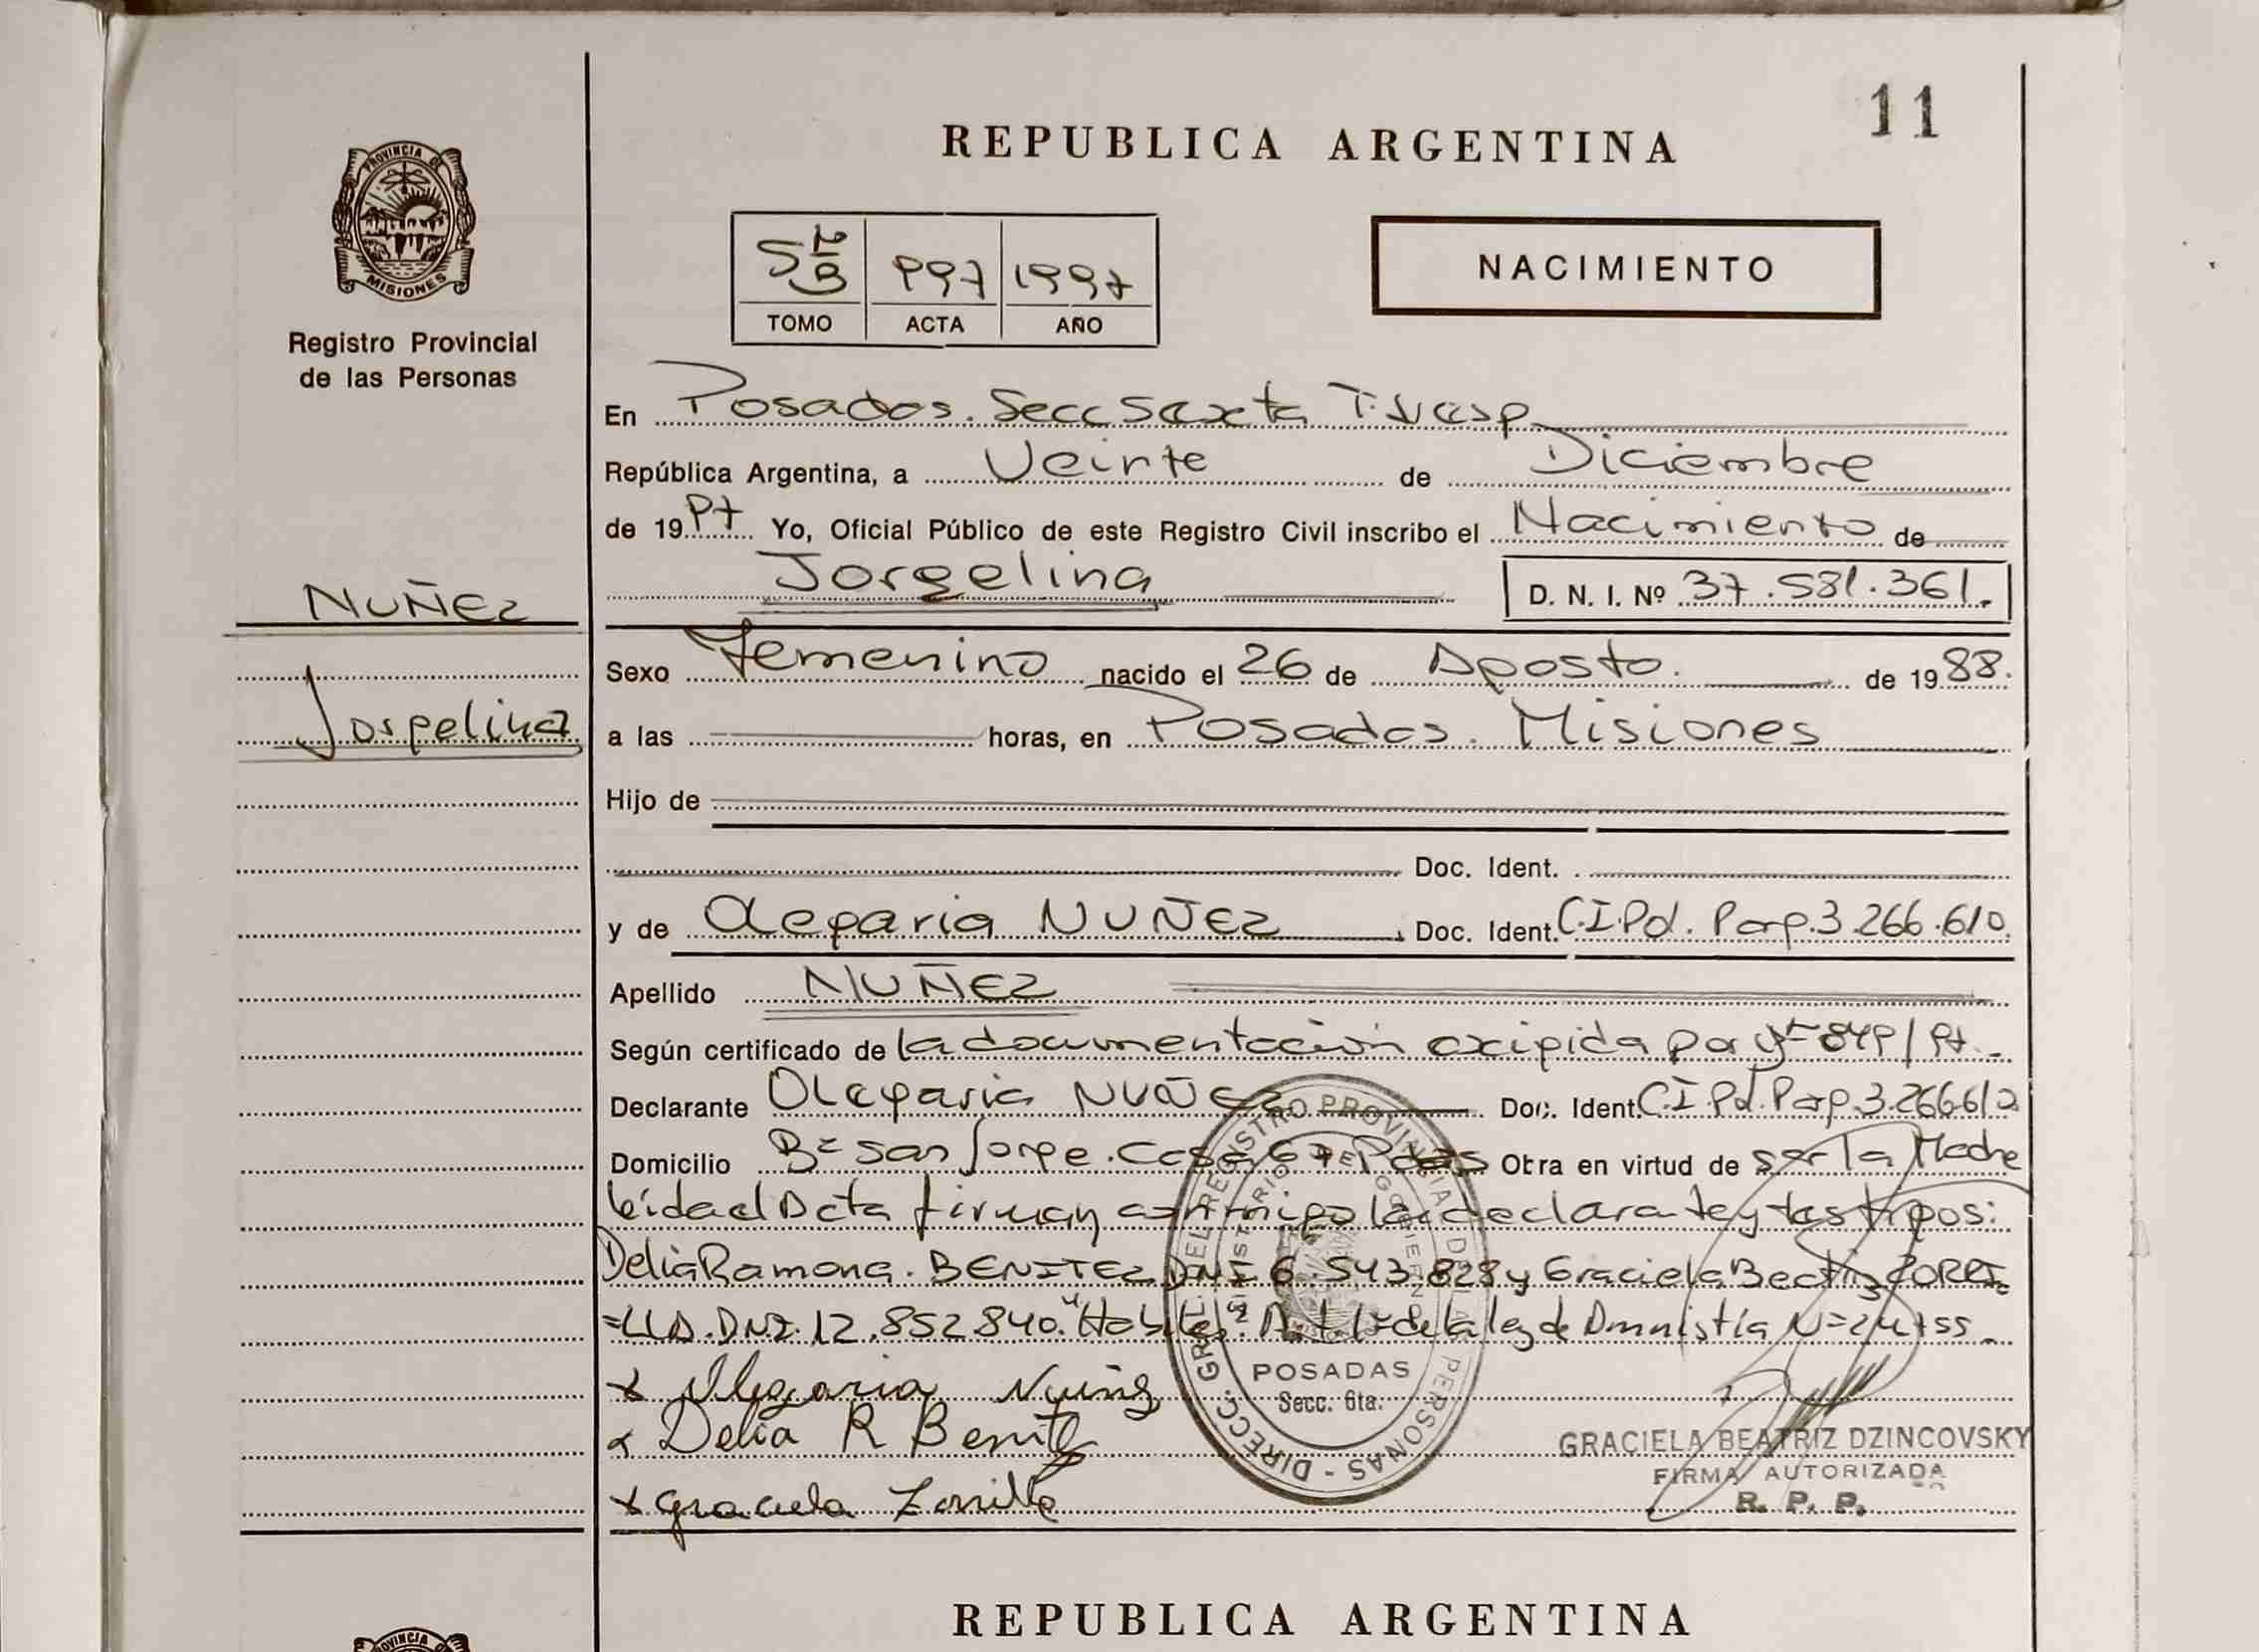 11
REPUBLICA ARGENTINA
PROVINCIA DE
MISIONES
Registro Provincial
de las Personas
NACIMIENTO
997 1997
TOMO ACTA AÑO
En Posadas. Secc Sexta
República Argentina, a Veinte de Diciembre
de 1997 Yo, Oficial Público de este Registro Civil inscribo el Nacimiento de
Jorgelina D. N. I. Nº 37.581.361.
NUÑEZ
Sexo Femenino nacido el 26 de Agosto. de 1988.
Jorgelina
a las horas, en Posadas. Misiones
Hijo de
Doc. Ident.
y de Olegaria NUÑEZ Doc. Ident. C.I.Pol. Parg. 3.266.610.
Apellido NUÑEZ
Según certificado de la documentación exigida por 849/97.
Declarante Olegaria NUÑEZ Doc. Ident. C.I Pol. Parg. 3.266610
Domicilio Bº San Jorge. Casa 67 Pdas Obra en virtud de ser la Madre
leída el Acta firman conmigo la declarante y testigos:
Delia Ramona. BENITEZ DNI 6.543.828 y Graciela Beatriz ZORRI=
=LLA. DNI. 12.852840. de la ley de Amnistía Nº 24755.
x Olegaria Nuñez
x Delia R Benitez
x Graciela Zorrilla
DIRECC. GRAL. DEL REGISTRO PROVINCIAL DE LAS PERSONAS
MINISTERIO DE GOBIERNO
POSADAS
Secc. 6ta.
GRACIELA BEATRIZ DZINCOVSKY
FIRMA AUTORIZADA
R. P. P.
REPUBLICA ARGENTINA
PROVINCIA